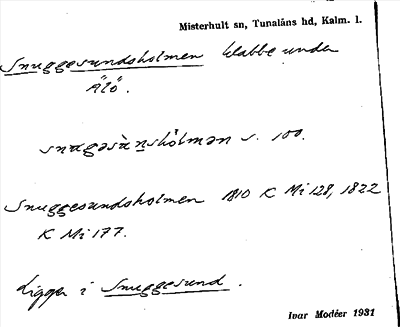 Misterhult sn, Tunaläns hd, Kalm. l.
Snuggesundsholmen klabbe under
Älö.
snɑgəsànshòlmən s. 100.
Snuggesundsholmen 1810 K Mi 128, 1822
K Mi 177.
Ligger i Snuggesund.
Ivar Modéer 1931